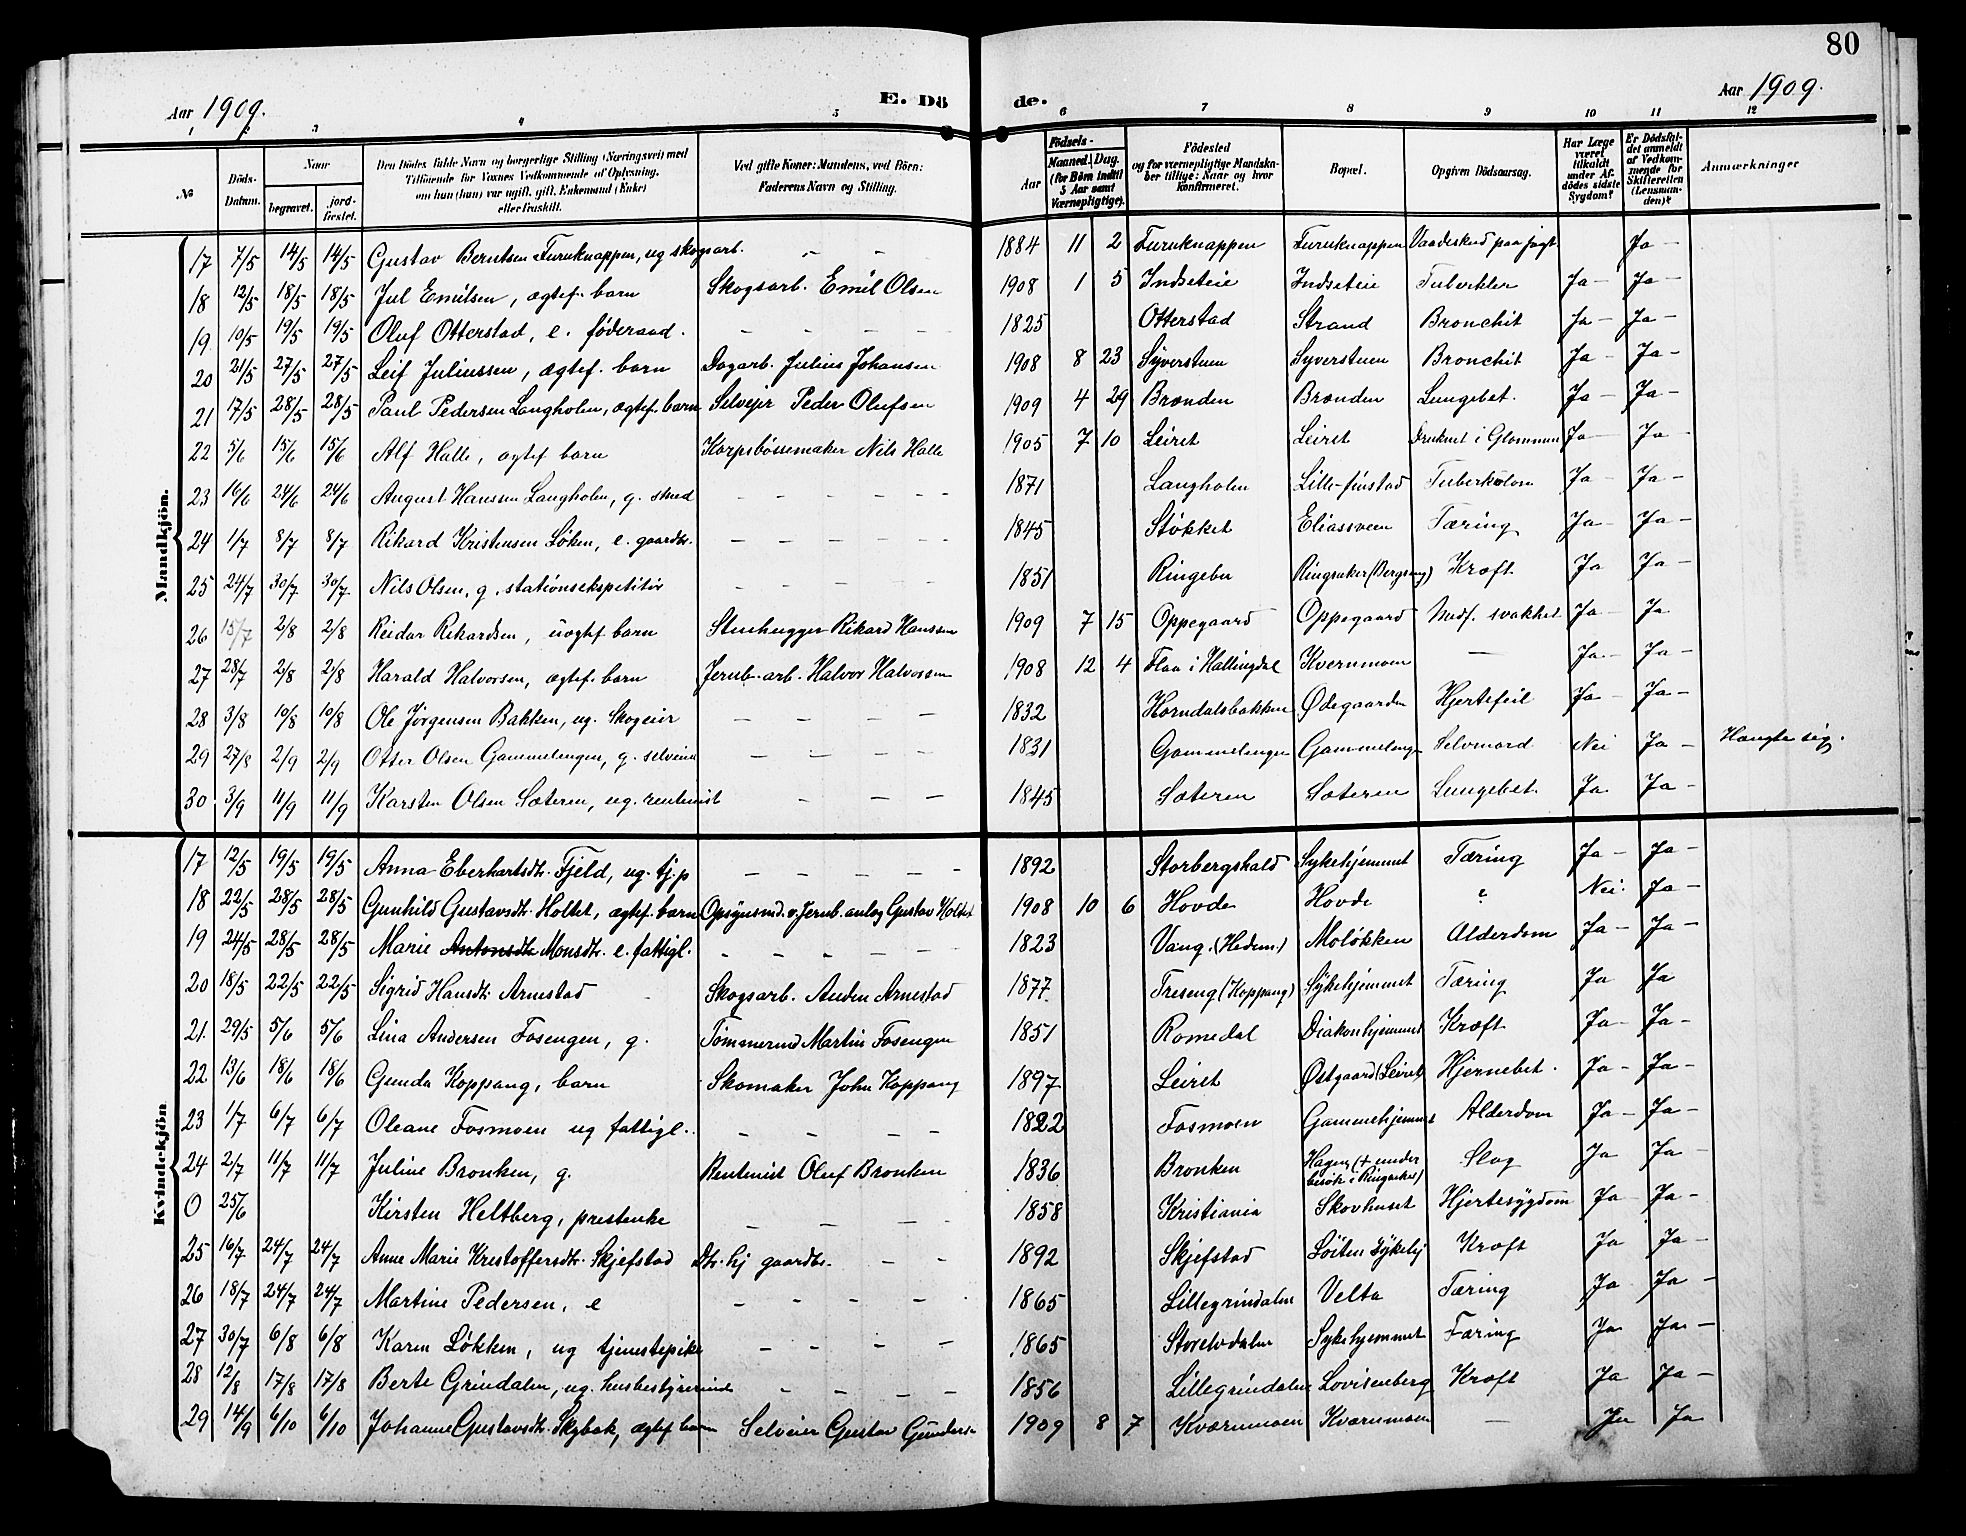 80
Aar 1909.
E. Dö de.
Aar 1909.
1 2 3 4 5 6 7 8 9 10 11 12
No
Döds-Datum.
Naar begravet. jord-fæstet.
Den Dödes fulde Navn og borgerlige Stilling (Næringsvei) med Tilföiende for Voxnes Vedkommende af Oplysning, om han (hun) var ugift, gift, Enkemand (Enke) eller fraskilt.
Ved gifte Koner: Mandens, ved Börn: Faderens Navn og Stilling.
Födsels- Aar Maaned. Dag. (for Börn indtil 5 Aar samt Værnepligtige).
Födested og for værnepligtige Mandskaber tillige: Naar og hvor konfirmeret.
Bopæl.
Opgiven Dödsaarsag.
Har Læge været tilkaldt under Afdödes sidste Sygdom?
Er Dödsfaldet anmeldt af Vedkommende for Skifteretten (Lensmanden)?
Anmærkninger
Mandkjön.
17 7/5 14/5 14/5 Gustav Berntsen Furuknappen, ug skogsarb. - - 1884 11 2 Furuknappen Furuknappen Vaadeskud paa jagt Ja -
18 12/5 18/5 18/5 Jul Emilsen, ægtef. barn Skogsarb. Emil Olsen 1908 1 5 Indseteie Indseteie Tuberkler Ja - Ja -
19 10/5 19/5 19/5 Oluf Otterstad, e. føderaad. - - - - 1825 Otterstad Strand Bronchit Ja - Ja -
20 21/5 27/5 27/5 Leif Juliussen, ægtef. barn Dagarb. Julius Johansen 1908 8 23 Syverstuen Syverstuen Bronchit Ja - Ja -
21 17/5 28/5 28/5 Paul Pedersen Langholen, ægtef. barn Selveier Peder Olufsen 1909 4 29 Brænden Brænden Lungebet. Ja - Ja -
22 5/6 15/6 15/6 Alf Halle, ægtef barn Korpsbøssemaker Nils Halle 1905 7 10 Leiret Leiret Druknet i Glommen Ja - Ja -
23 16/6 24/6 24/6 August Hansen Langholen, g. smed - - - - - - 1871 Langholen Lille-finstad Tuberkulose Ja - Ja -
24 1/7 8/7 8/7 Rikard Kristensen Løken, e. gaardbr. - - - - - 1845 Støkket Eliassveen Tæring Ja - Ja -
25 24/7 30/7 30/7 Nils Olsen, g. stationsekspeditör - - - - 1851 Ringebu Ringsaker (Bergseng) Kræft Ja Ja -
26 15/7 2/8 2/8 Reidar Rikardsen, uægtef barn Stenhugger Rikard Hanssen 1909 7 15 Oppegaard Oppegaard Medf. svakhet Ja - Ja
27 28/7 2/8 2/8 Harald Halvorsen, ægtef. barn Jernb. arb. Halvor Halvorsen 1908 12 4 Flaa i Hallingdal Kvernmoen - Ja - Ja -
28 3/8 10/8 10/8 Ole Jörgensen Bakken, ug. Skogeier - - - - 1832 Horndalsbakken Ødegaarden Hjertefeil Ja - Ja -
29 27/8 2/9 2/9 Otter Olsen Gammelengen, g. selveier - - - - 1831 Gammelengen Gammelengen Selvmord Nei Ja - Hængte sig.
30 3/9 11/9 11/9 Karsten Olsen Sæteren, ug. rentenist - - - 1845 Sæteren Sæteren Lungebet. Ja Ja -
Kvindekjön
17 12/5 19/5 19/5 Anna Eberhartsdtr. Fjeld, ug. tj.p - - - - - 1892 Storbergshald Sykehjemmet Tæring Ja - Ja -
18 22/5 28/5 28/5 Gunhild Gustavsdtr. Holtet, ægtef. barn Opsynsmd. v. Jernb. anlæg Gustav Holtet 1908 10 6 Hovde Hovde " Nei. Ja -
19 24/5 28/5 28/5 Marie Antonsdtr Monsdtr. e. fattigl. - - - - - 1823 Vang. (Hedem.) Moløkken Alderdom Ja - Ja -
20 18/5 22/5 22/5 Sigrid Hansdtr Arnestad Skogsarb. Anders Arnestad 1877 Treseng (Koppang) Sykehjemmet Tæring Ja Ja
21. 29/5 5/6 5/6 Lina Andersen Fosengen, g. Tømmermd Martin Fosengen 1851 Romedal Diakonhjemmet Kræft Ja - Ja -
22 13/6 18/6 18/6 Gunda Koppang, barn Skomaker John Koppang 1897 Leiret Østgaard (Leiret) Hjernebet. Ja - Ja -
23 1/7 6/7 6/7 Oleane Fosmoen ug fattigl. - - - - 1822 Fosmoen Gammehjemmet Alderdom Ja - Ja -
24 2/7 11/7 11/7 Juline Bronken, g. Rentenist Oluf Bronken 1836 Bronken Hagen (+ under besøk i Ringsaker) Slag Ja Ja -
0 25/6 Kirsten Heltberg, presteenke - - - - 1858 Kristiania Skovhuset Hjertesygdom Ja - Ja -
25 16/7 24/7 24/7 Anne Marie Kristoffersdtr. Skjefstad Dtr. hj gaardbr. - - 1892 Skjefstad Löiten Sykehj Kræft Ja Ja -
26 18/7 24/7 24/7 Martine Pedersen, e - - - - - 1865 Lillegrindalen Velta Tæring Ja Ja -
27 30/7 6/8 6/8 Karen Løkken, ug tjenestepike - - - - 1865 Storelvdalen Sykehjemmet Tæring Ja Ja -
28 12/8 17/8 17/8 Berte Grindalen, ug. husbestyrerinde - - - - 1856 Lillegrindalen Lovisenberg Kræft Ja Ja -
29 14/9 6/10 6/10 Johanne Gustavsdtr. Skybak, ægtef barn Selveier Gustav Gundersen 1909 8 7 Kværnmoen Kværnmoen - Ja Ja